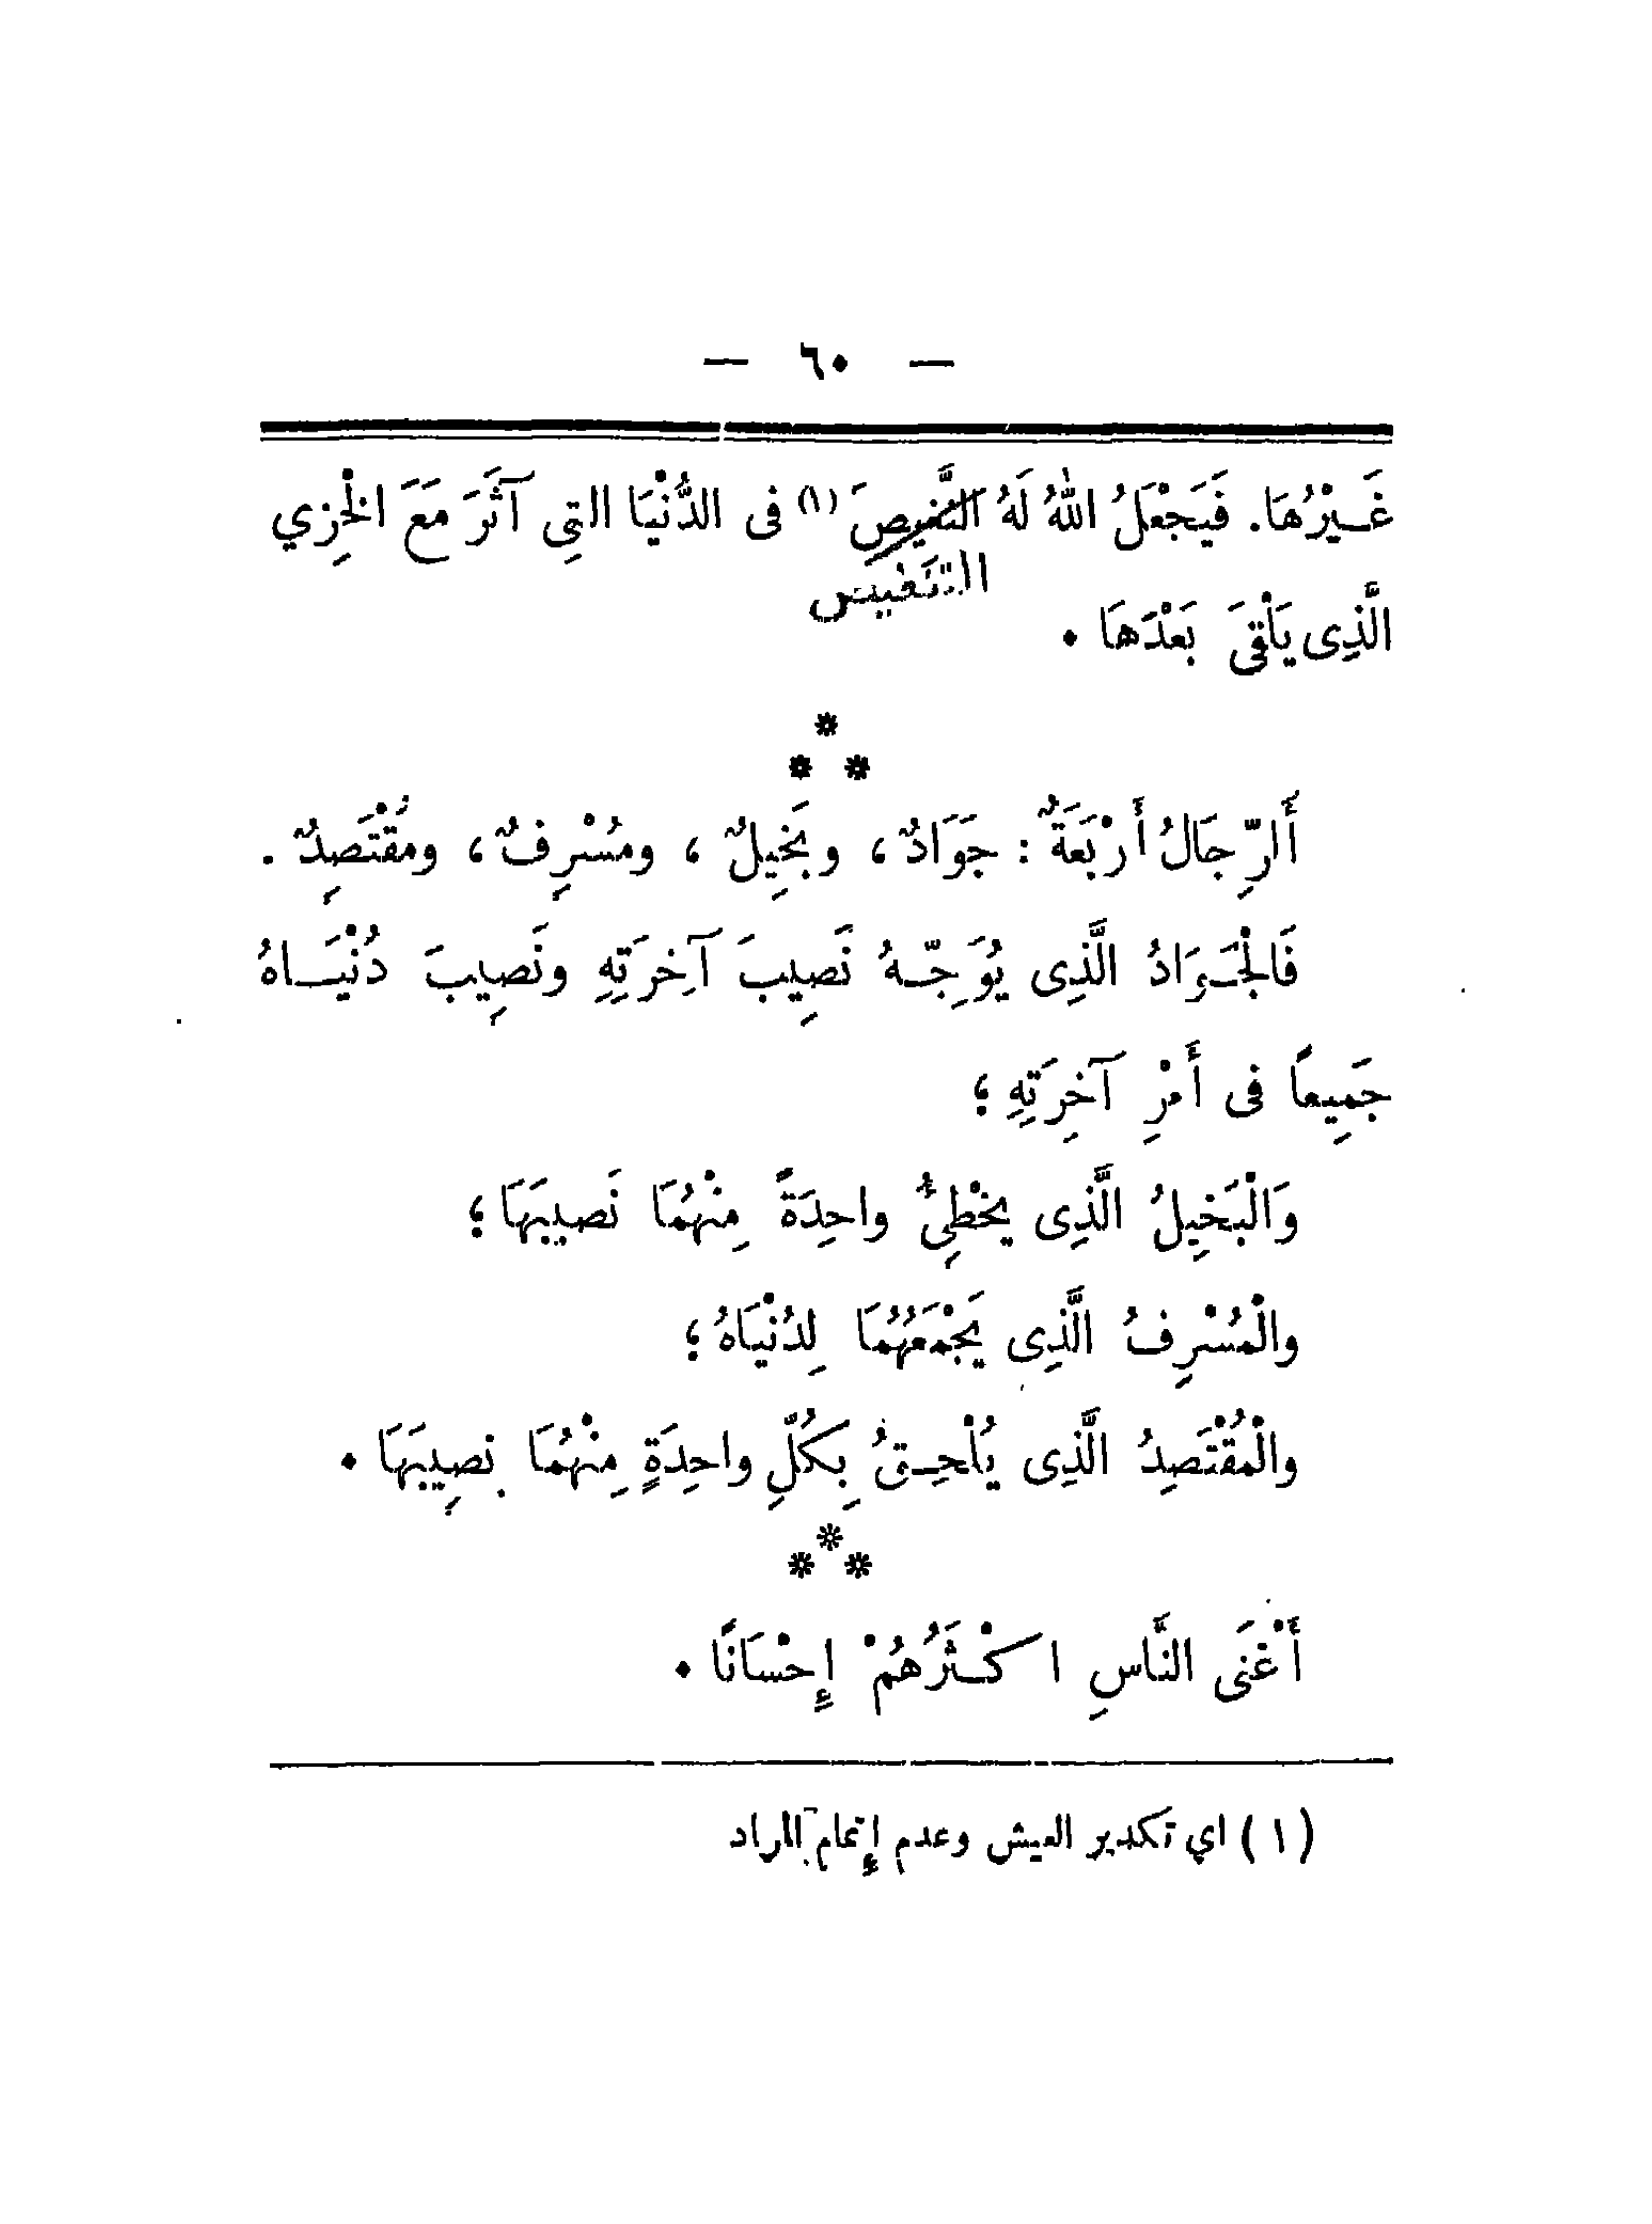 — ٦٠ —
غَـيْرُهَا. فَيَجْعَلُ اللهُ لَهُ التَّنغيصَ (١) فى الدُّنْيَا التِى آثَرَ مَعَ الْخِزي
التنغيص
الَّذِى يَلْقَى بَعْدَهَا .
*
* *
أَلرِّجَالُ أَرْبَعَةٌ : جَوَادٌ ، وبَخِيلٌ ، ومُسْرِفٌ ، ومُقْتَصِدٌ .
فَالْجَـوَادُ الَّذِى يُوَجِّـهُ نَصِيبَ آخِرَتِهِ ونَصِيبَ دُنْيَـاهُ
جَمِيعاً فى أَمْرِ آخِرَتِهِ ؛
وَالْبَخِيلُ الَّذِى يخْطِئُ واحِدَةً مِنْهُمَا نَصيبَهَا ؛
والْمُسْرِفُ الَّذِى يَجْمَعُهُمَا لِدُنْيَاهُ ؛
والْمُقْتَصِدُ الَّذِى يُلْحِـقُ بِكُلِّ واحِدَةٍ مِنْهُمَا نصِيبَهَا .
*
* *
أَغْنَى النَّاسِ اكْـثَرُهُمْ إِحْسَانًا .
(١) اي تكدير العيش وعدم إِتمام المراد